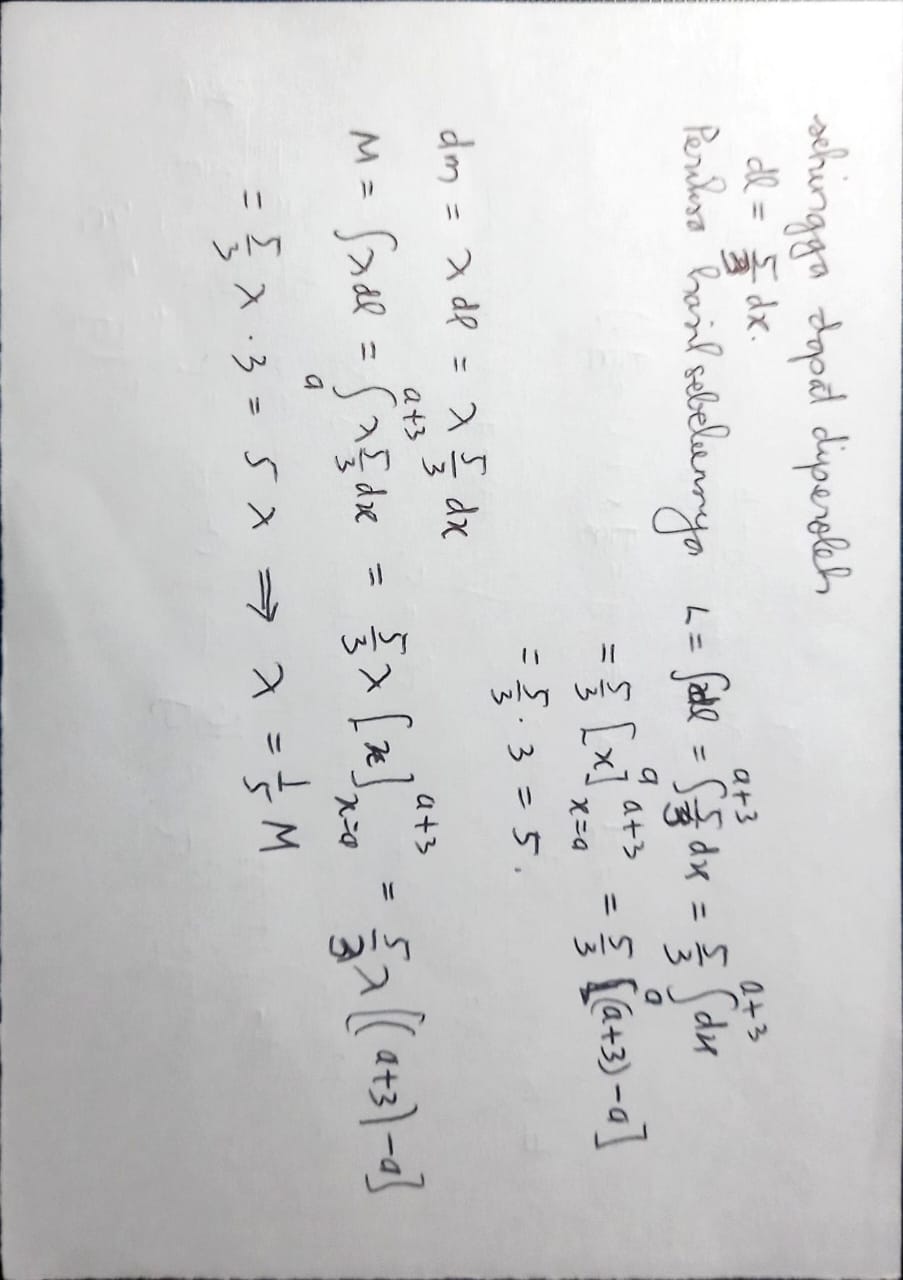 sehingga dapat diperoleh
dl = 5/3 dx.
Periksa hasil sebelumnya L = ∫dl = ∫_a^{a+3} 5/3 dx = 5/3 ∫_a^{a+3} dx
= 5/3 [x]_{x=a}^{a+3} = 5/3 [(a+3)-a]
= 5/3 · 3 = 5.
dm = λ dl = λ 5/3 dx
M = ∫λ dl = ∫_a^{a+3} λ 5/3 dx = 5/3 λ [x]_{x=a}^{a+3} = 5/3 λ [(a+3)-a]
= 5/3 λ · 3 = 5 λ ⇒ λ = 1/5 M